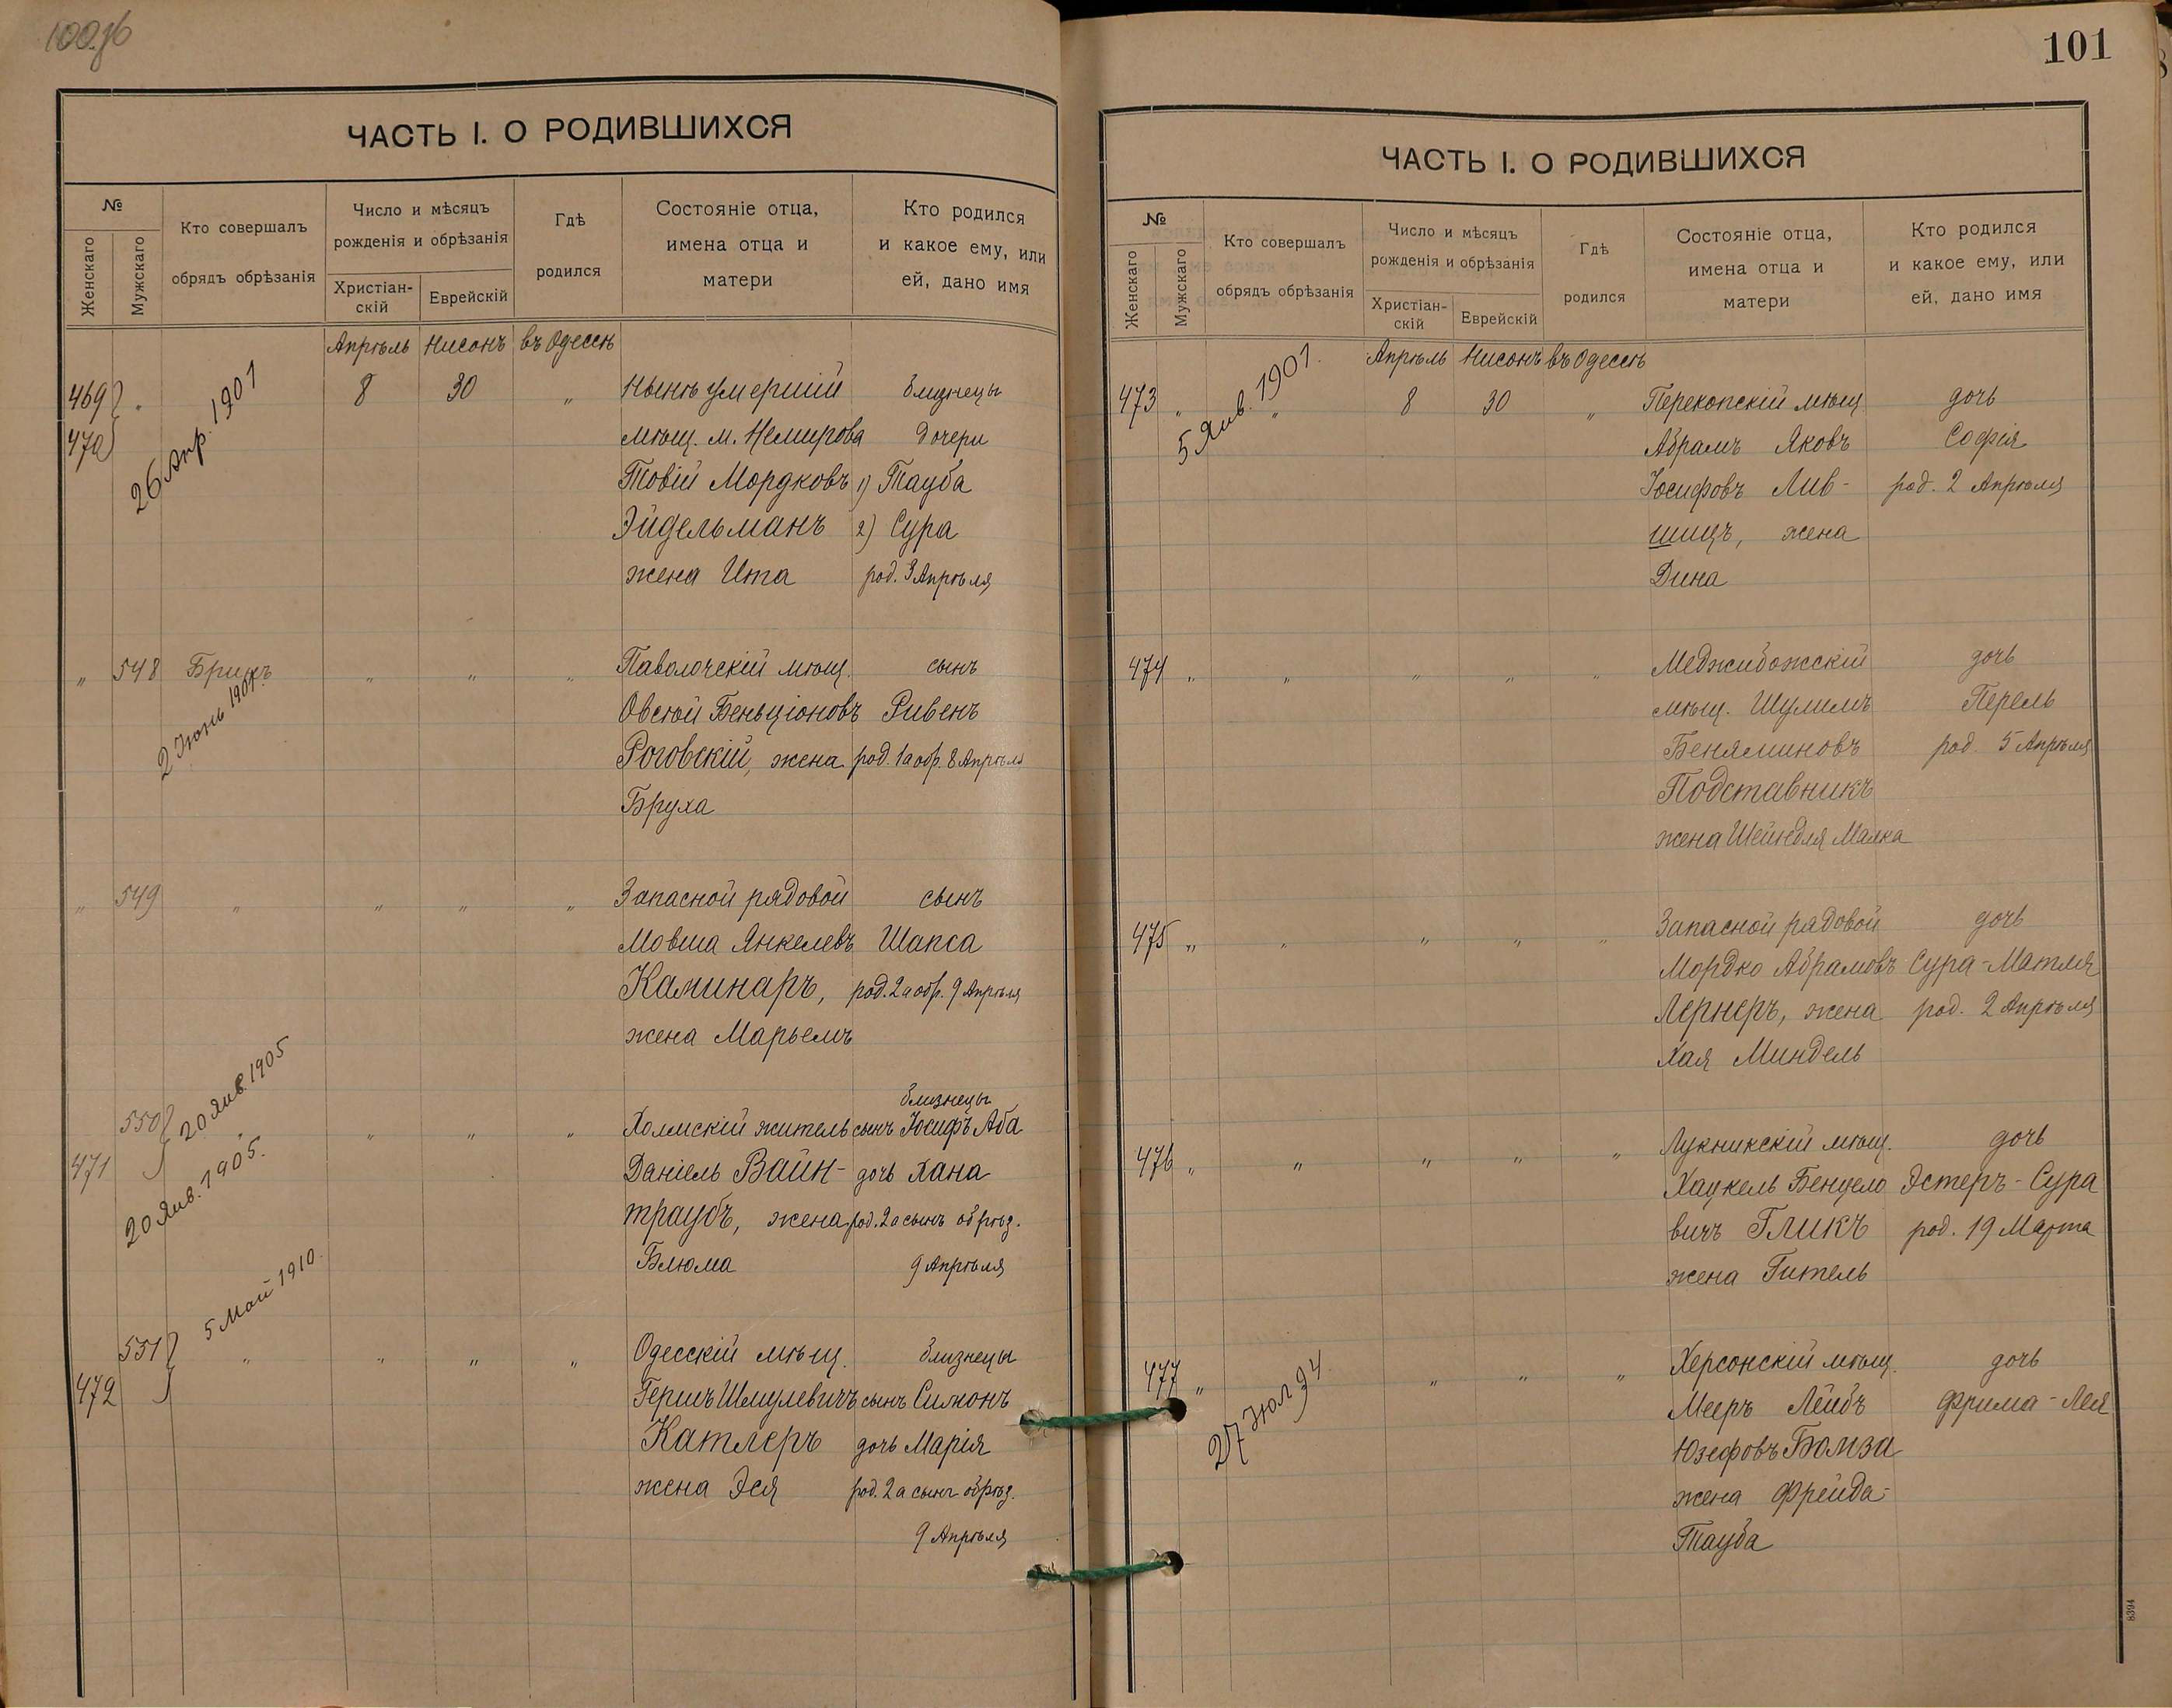 100об
ЧАСТЬ I. О РОДИВШИХСЯ
№
Женскаго
Мужскаго
Кто совершалъ
обрядъ обрѣзанія
Число и мѣсяцъ
рожденія и обрѣзанія
Христіан-
скій
Еврейскій
Гдѣ
родился
Состояніе отца,
имена отца и
матери
Кто родился
и какое ему, или
ей, дано имя
Апрѣль Нисонъ въ Одессѣ
469 " 8 30 " Нынѣ умершій близнецы
470 мѣщ. м. Немирова дочери
26 Апр. 1901
Товій Мордковъ 1) Тауба
Эйдельманъ 2) Сура
жена Ита род. 3 Апрѣля
" 548 Брикъ " " " Паволочскій мѣщ. сынъ
2 Іюнь 1907.
Овсѣй Беньціоновъ Ривенъ
Роговскій, жена род. 1 а обр. 8 Апрѣля
Бруха
" 549 " " " " Запасной рядовой сынъ
Мовша Янкелевъ Шапса
Каминаръ, род. 2 а обр. 9 Апрѣля
жена Марьемъ
близнецы
550 20 Янв. 1905 " " " " Холмскій житель сынъ Іосифъ Аба
471 Даніель Вайн- дочь Хана
20 Янв. 1905.
траубъ, жена род. 2 а сынъ обрѣз.
Блюма 9 Апрѣля
5 Май 1910.
551 " " " " Одесскій мѣщ. близнецы
472 Гершъ Шмулевичъ сынъ Симонъ
Катлеръ дочь Марія
жена Эся род. 2 а сынъ обрѣз.
9 Апрѣля
101
ЧАСТЬ I. О РОДИВШИХСЯ
№
Женскаго
Мужскаго
Кто совершалъ
обрядъ обрѣзанія
Число и мѣсяцъ
рожденія и обрѣзанія
Христіан-
скій
Еврейскій
Гдѣ
родился
Состояніе отца,
имена отца и
матери
Кто родился
и какое ему, или
ей, дано имя
Апрѣль Нисонъ въ Одессѣ
5 Янв. 1901.
473 " " 8 30 " Перекопскій мѣщ дочь
Абрамъ Яковъ Софія
Іосифовъ Лив- род. 2 Апрѣля
шицъ, жена
Дина
474 " " " " " Меджибожскій дочь
мѣщ. Шулимъ Перель
Беняминовъ род. 5 Апрѣля
Подставникъ
жена Шейндля Малка
475 " " " " " Запасной рядовой дочь
Мордко Абрамовъ Сура-Матля
Лернеръ, жена род. 2 Апрѣля
Хая Миндель
476 " " " " " Лукникскій мѣщ. дочь
Хацкель Бенцело Эстеръ-Сура
вичъ Гликъ род. 19 Марта
жена Гитель
477 " " " " Херсонскій мѣщ. дочь
27 Іюл 94.
Мееръ Лейбъ Фрима-Лея
Юзефовъ Бомза
жена Фрейда-
Тауба
8394